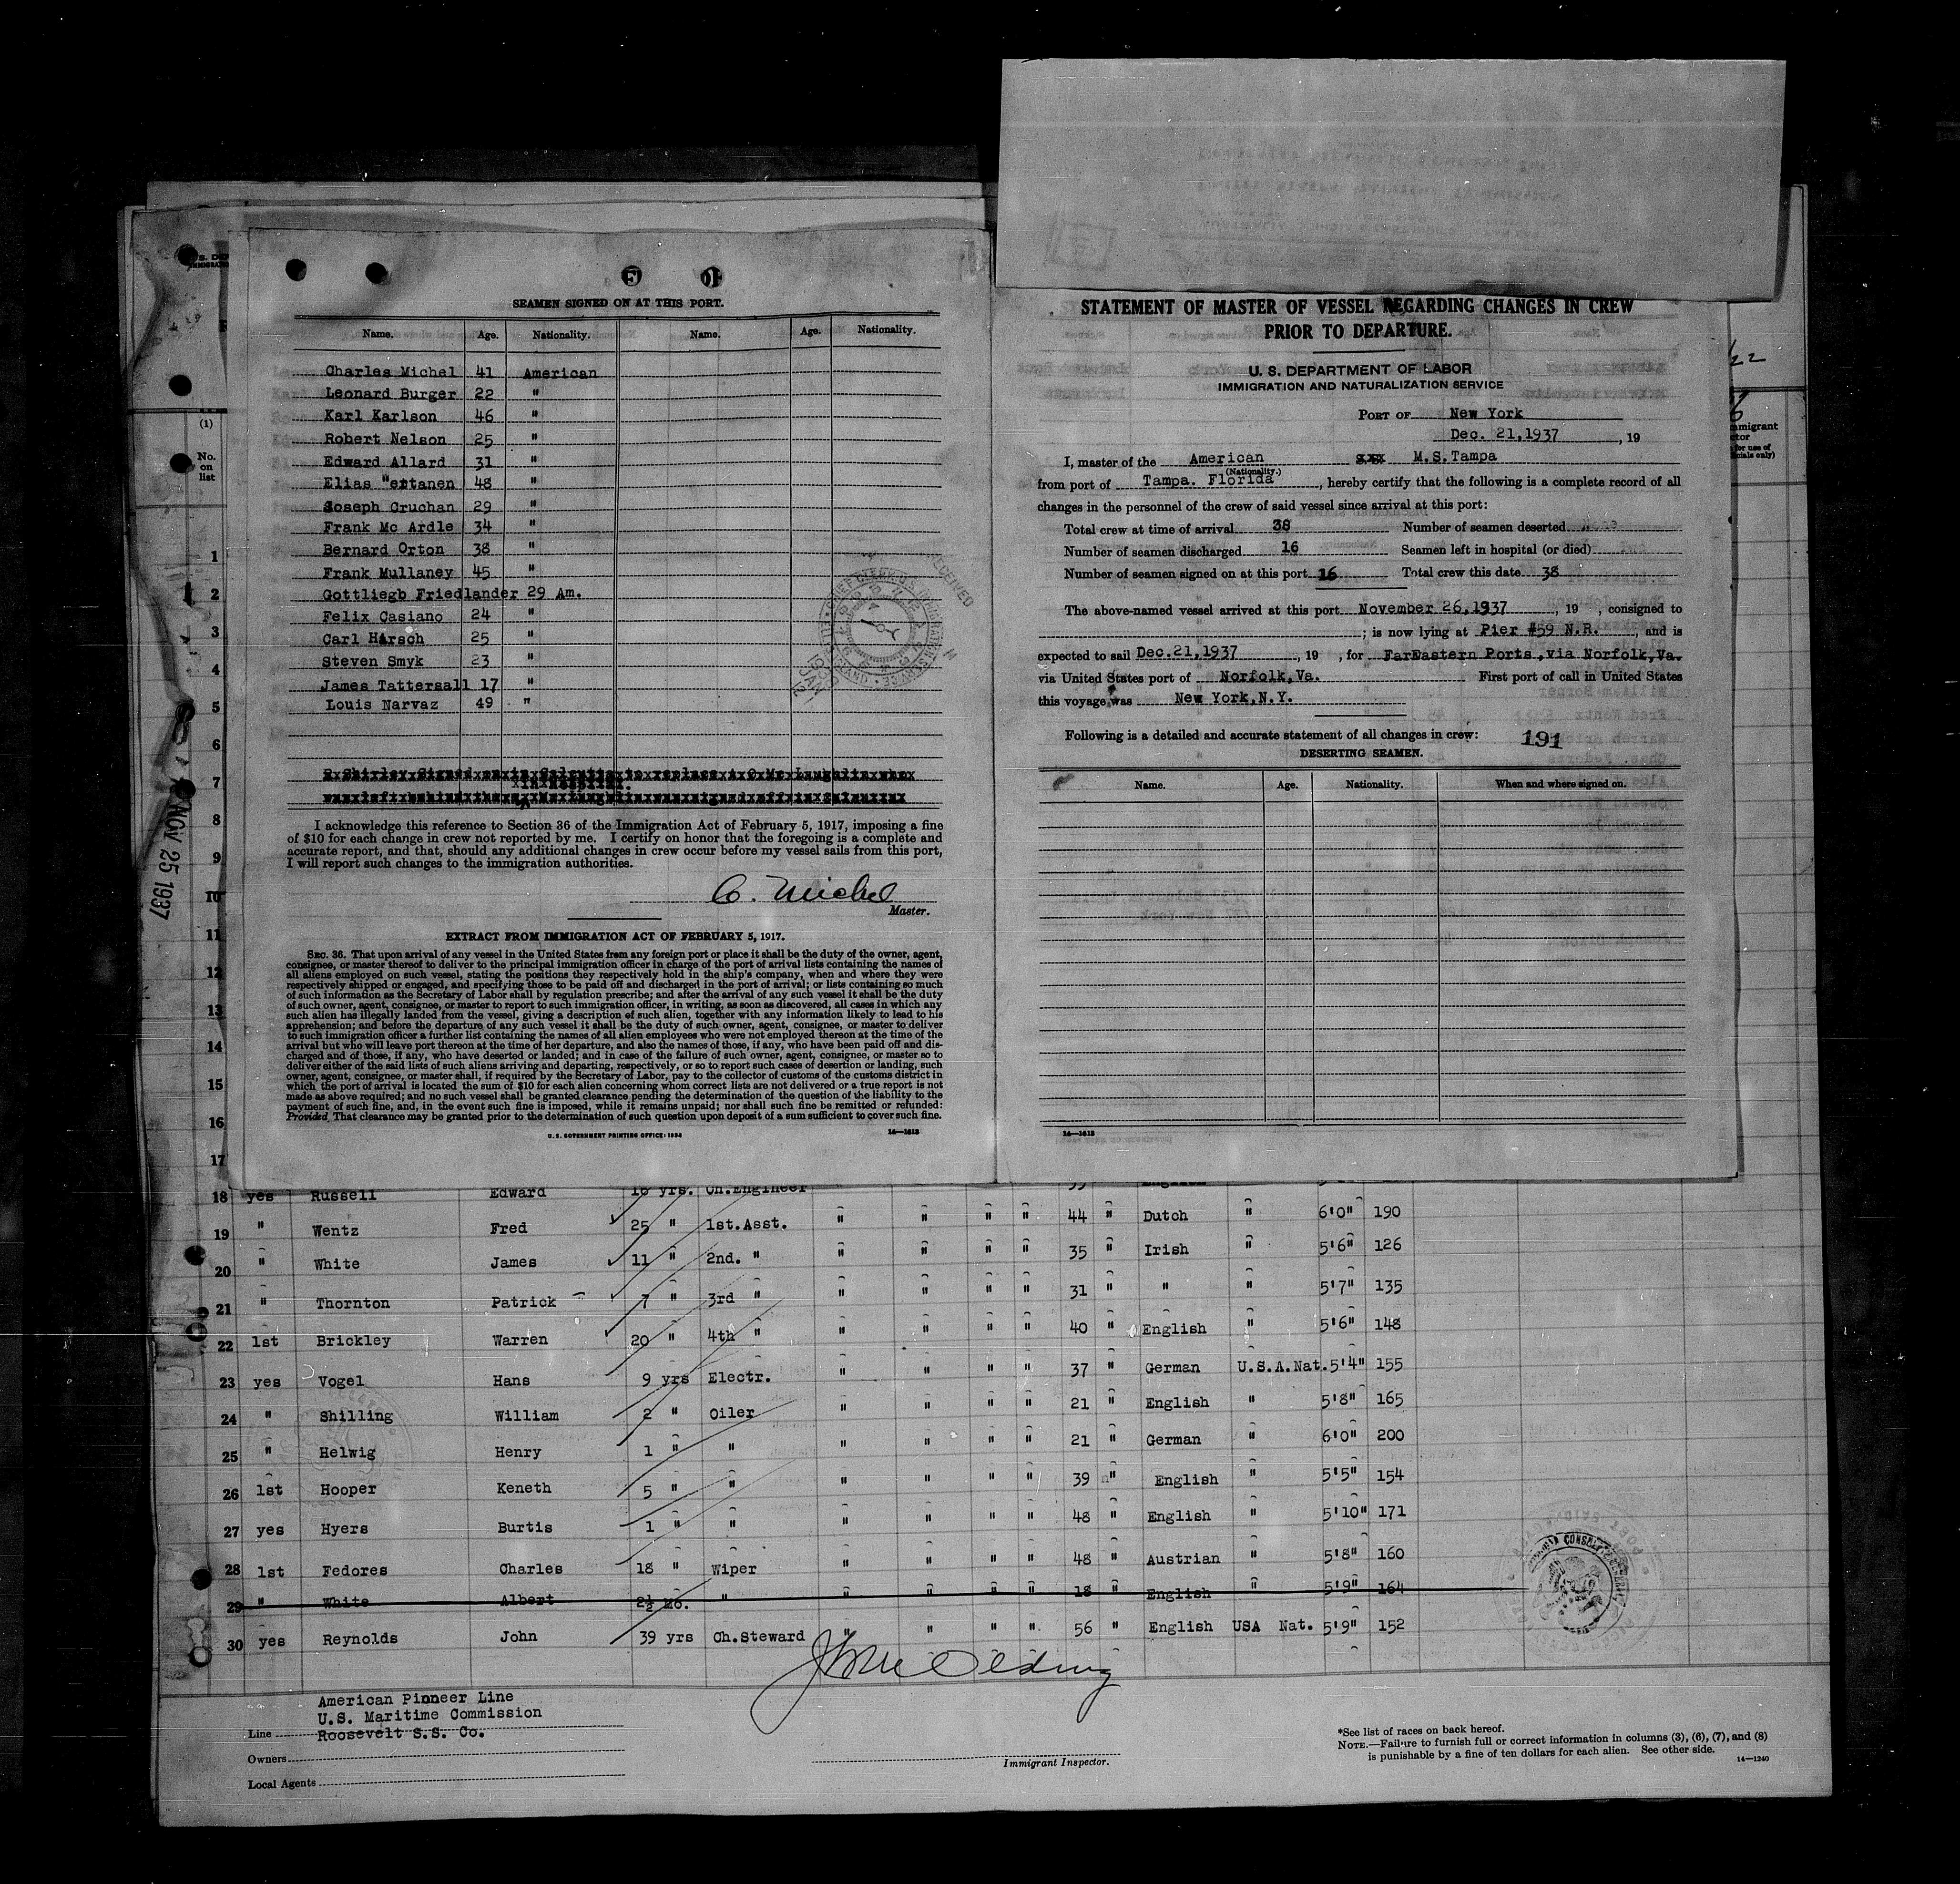 SEAMEN SIGNED ON AT THIS PORT.
Name. Age. Nationality. Name. Age. Nationality.
Charles Michel 41 American
Leonard Burger 22 "
Karl Karlson 46 "
Robert Nelson 25 "
Edward Allard 31 "
Elias "ertanen 48 "
Joseph Cruchan 29 "
Frank Mc Ardle 34 "
Bernard Orton 38 "
Frank Mullaney 45 "
Gottliegb Friedlander 29 Am.
Felix Casiano 24 "
Carl Hirsch 25 "
Steven Smyk 23 "
James Tattersall 17 "
Louis Narvaz 49 "
I acknowledge this reference to Section 36 of the Immigration Act of February 5, 1917, imposing a fine
of $10 for each change in crew not reported by me. I certify on honor that the foregoing is a complete and
accurate report, and that, should any additional changes in crew occur before my vessel sails from this port,
I will report such changes to the immigration authorities.
C. Michel
Master.
EXTRACT FROM IMMIGRATION ACT OF FEBRUARY 5, 1917.
SEC. 36. That upon arrival of any vessel in the United States from any foreign port or place it shall be the duty of the owner, agent,
consignee, or master thereof to deliver to the principal immigration officer in charge of the port of arrival lists containing the names of
all aliens employed on such vessel, stating the positions they respectively hold in the ship's company, when and where they were
respectively shipped or engaged, and specifying those to be paid off and discharged in the port of arrival; or lists containing so much
of such information as the Secretary of Labor shall by regulation prescribe; and after the arrival of any such vessel it shall be the duty
of such owner, agent, consignee, or master to report to such immigration officer, in writing, as soon as discovered, all cases in which any
such alien has illegally landed from the vessel, giving a description of such alien, together with any information likely to lead to his
apprehension; and before the departure of any such vessel it shall be the duty of such owner, agent, consignee, or master to deliver
to such immigration officer a further list containing the names of all alien employees who were not employed thereon at the time of the
arrival but who will leave port thereon at the time of her departure, and also the names of those, if any, who have been paid off and dis-
charged and of those, if any, who have deserted or landed; and in case of the failure of such owner, agent, consignee, or master so to
deliver either of the said lists of such aliens arriving and departing, respectively, or so to report such cases of desertion or landing, such
owner, agent, consignee, or master shall, if required by the Secretary of Labor, pay to the collector of customs of the customs district in
which the port of arrival is located the sum of $10 for each alien concerning whom correct lists are not delivered or a true report is not
made as above required; and no such vessel shall be granted clearance pending the determination of the question of the liability to the
payment of such fine, and, in the event such fine is imposed, while it remains unpaid; nor shall such fine be remitted or refunded:
Provided, That clearance may be granted prior to the determination of such question upon deposit of a sum sufficient to cover such fine.
U. S. GOVERNMENT PRINTING OFFICE: 1934 14—1613
STATEMENT OF MASTER OF VESSEL REGARDING CHANGES IN CREW
PRIOR TO DEPARTURE.
U. S. DEPARTMENT OF LABOR
IMMIGRATION AND NATURALIZATION SERVICE
PORT OF New York
Dec. 21,1937, 19
I, master of the American xxx M.S.Tampa
(Nationality.)
from port of Tampa. Florida, hereby certify that the following is a complete record of all
changes in the personnel of the crew of said vessel since arrival at this port:
Total crew at time of arrival 38 Number of seamen deserted
Number of seamen discharged 16 Seamen left in hospital (or died)
Number of seamen signed on at this port 16 Total crew this date 38
The above-named vessel arrived at this port November 26,1937, 19 , consigned to
; is now lying at Pier #59 N.R., and is
expected to sail Dec.21,1937, 19 , for FarEastern Ports,via Norfolk,Va.
via United States port of Norfolk,Va. First port of call in United States
this voyage was New York,N.Y.
Following is a detailed and accurate statement of all changes in crew: 191
DESERTING SEAMEN.
Name. Age. Nationality. When and where signed on.
14—1613
(1)
No.
on
list
1
2
3
4
5
6
7
8
9
10
11
12
13
14
15
16
17
NOV 25 1937
18 yes Russell Edward 16 yrs. Ch.Engineer
19 " Wentz Fred 25 " 1st.Asst. " " " " 44 " Dutch " 6'0" 190
20 " White James 11 " 2nd. " " " " " 35 " Irish " 5'6" 126
21 " Thornton Patrick 7 " 3rd " " " " " 31 " " " 5'7" 135
22 1st Brickley Warren 20 " 4th " " " " " 40 " English " 5'6" 148
23 yes Vogel Hans 9 yrs Electr. " " " " 37 " German U.S.A.Nat. 5'4" 155
24 " Shilling William 2 " Oiler " " " " 21 " English " 5'8" 165
25 " Helwig Henry 1 " " " " " " 21 " German " 6'0" 200
26 1st Hooper Keneth 5 " " " " " " 39 " English " 5'5" 154
27 yes Hyers Burtis 1 " " " " " " 48 " English " 5'10" 171
28 1st Fedores Charles 18 " Wiper " " " " 48 " Austrian " 5'8" 160
29 " White Albert 2½ Mo. " " " " " 18 " English " 5'9" 164
30 yes Reynolds John 39 yrs Ch.Steward " " " " 56 " English USA Nat. 5'9" 152
American Pinneer Line
U.S. Maritime Commission
Line Roosevelt S.S. Co.
Owners
Local Agents
Immigrant Inspector.
*See list of races on back hereof.
NOTE.—Failure to furnish full or correct information in columns (3), (6), (7), and (8)
is punishable by a fine of ten dollars for each alien. See other side. 14—1240